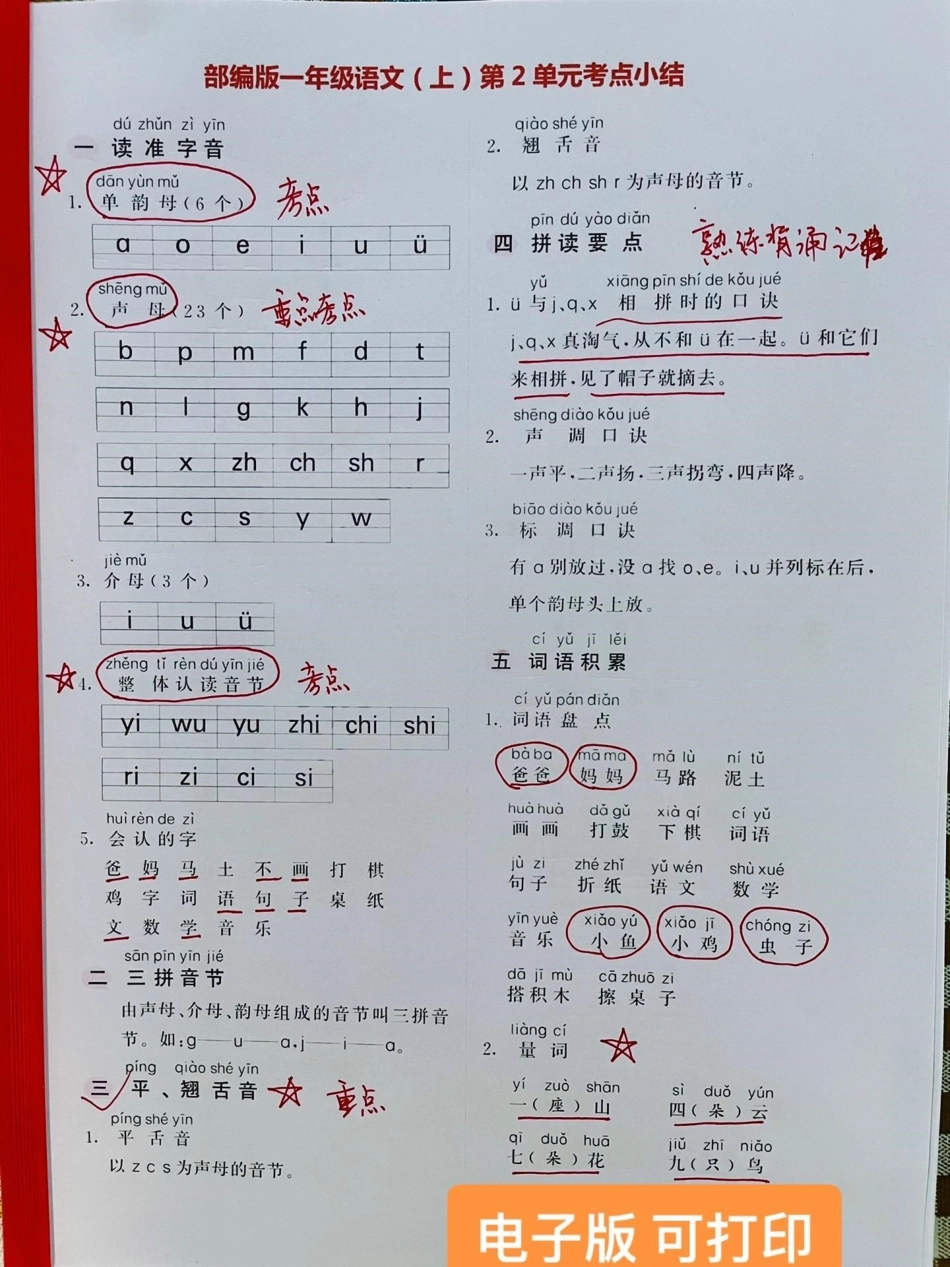 部编版一年级语文(上)第2单元考点小结
dú zhǔn zì yīn
一 读准字音
dān yùn mǔ
1. 单韵母(6个) 考点
ɑ o e i u ü
shēng mǔ
2. 声母(23个) 重点考点
b p m f d t
n l g k h j
q x zh ch sh r
z c s y w
jiè mǔ
3. 介母(3个)
i u ü
zhěng tǐ rèn dú yīn jié
4. 整体认读音节 考点
yi wu yu zhi chi shi
ri zi ci si
huì rèn de zì
5. 会认的字
爸 妈 马 土 不 画 打 棋
鸡 字 词 语 句 子 桌 纸
文 数 学 音 乐
sān pīn yīn jié
二 三拼音节
由声母、介母、韵母组成的音节叫三拼音
节。如:g——u——ɑ,j——i——ɑ。
píng qiào shé yīn
三 平、翘舌音 重点
píng shé yīn
1. 平舌音
以 z c s 为声母的音节。
qiào shé yīn
2. 翘舌音
以 zh ch sh r 为声母的音节。
pīn dú yào diǎn
四 拼读要点 熟练背诵记
yǔ xiāng pīn shí de kǒu jué
1. ü 与 j、q、x 相拼时的口诀
j、q、x 真淘气,从不和 ü 在一起。ü 和它们
来相拼,见了帽子就摘去。
shēng diào kǒu jué
2. 声调口诀
一声平,二声扬,三声拐弯,四声降。
biāo diào kǒu jué
3. 标调口诀
有 ɑ 别放过,没 ɑ 找 o、e。i、u 并列标在后,
单个韵母头上放。
cí yǔ jī lěi
五 词语积累
cí yǔ pán diǎn
1. 词语盘点
bà ba mā ma mǎ lù ní tǔ
爸爸 妈妈 马路 泥土
huà huà dǎ gǔ xià qí cí yǔ
画画 打鼓 下棋 词语
jù zi zhé zhǐ yǔ wén shù xué
句子 折纸 语文 数学
yīn yuè xiǎo yú xiǎo jī chóng zi
音乐 小鱼 小鸡 虫子
dā jī mù cā zhuō zi
搭积木 擦桌子
liàng cí
2. 量词
yí zuò shān sì duǒ yún
一(座)山 四(朵)云
qī duǒ huā jiǔ zhī niǎo
七(朵)花 九(只)鸟
电子版 可打印